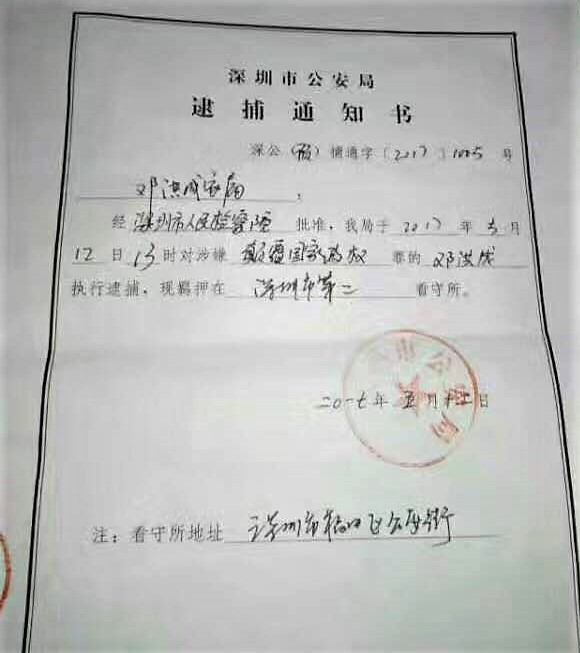 深圳市公安局
逮捕通知书
深公（预）捕通字〔2017〕1005 号
邓洪成家属，
经 深圳市人民检察院 批准，我局于 2017 年 5 月
12 日 13 时对涉嫌 颠覆国家政权 罪的 邓洪成
执行逮捕，现羁押在 深圳市第二 看守所。
二〇一七年 五 月 十二 日
注：看守所地址 深圳市